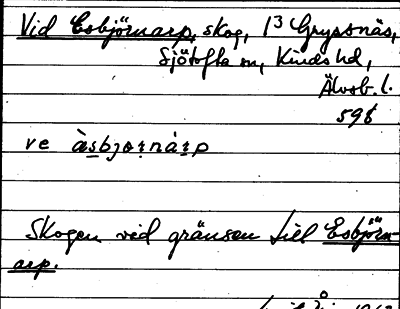 Vid Esbjörnarp, skog, 1³ Gryssnäs,
Sjötofta sn, Kinds hd,
Älvsb. l.
598
ve àsbjo̤ṇàṛp
Skogen vid gränsen till Esbjörn-
arp.